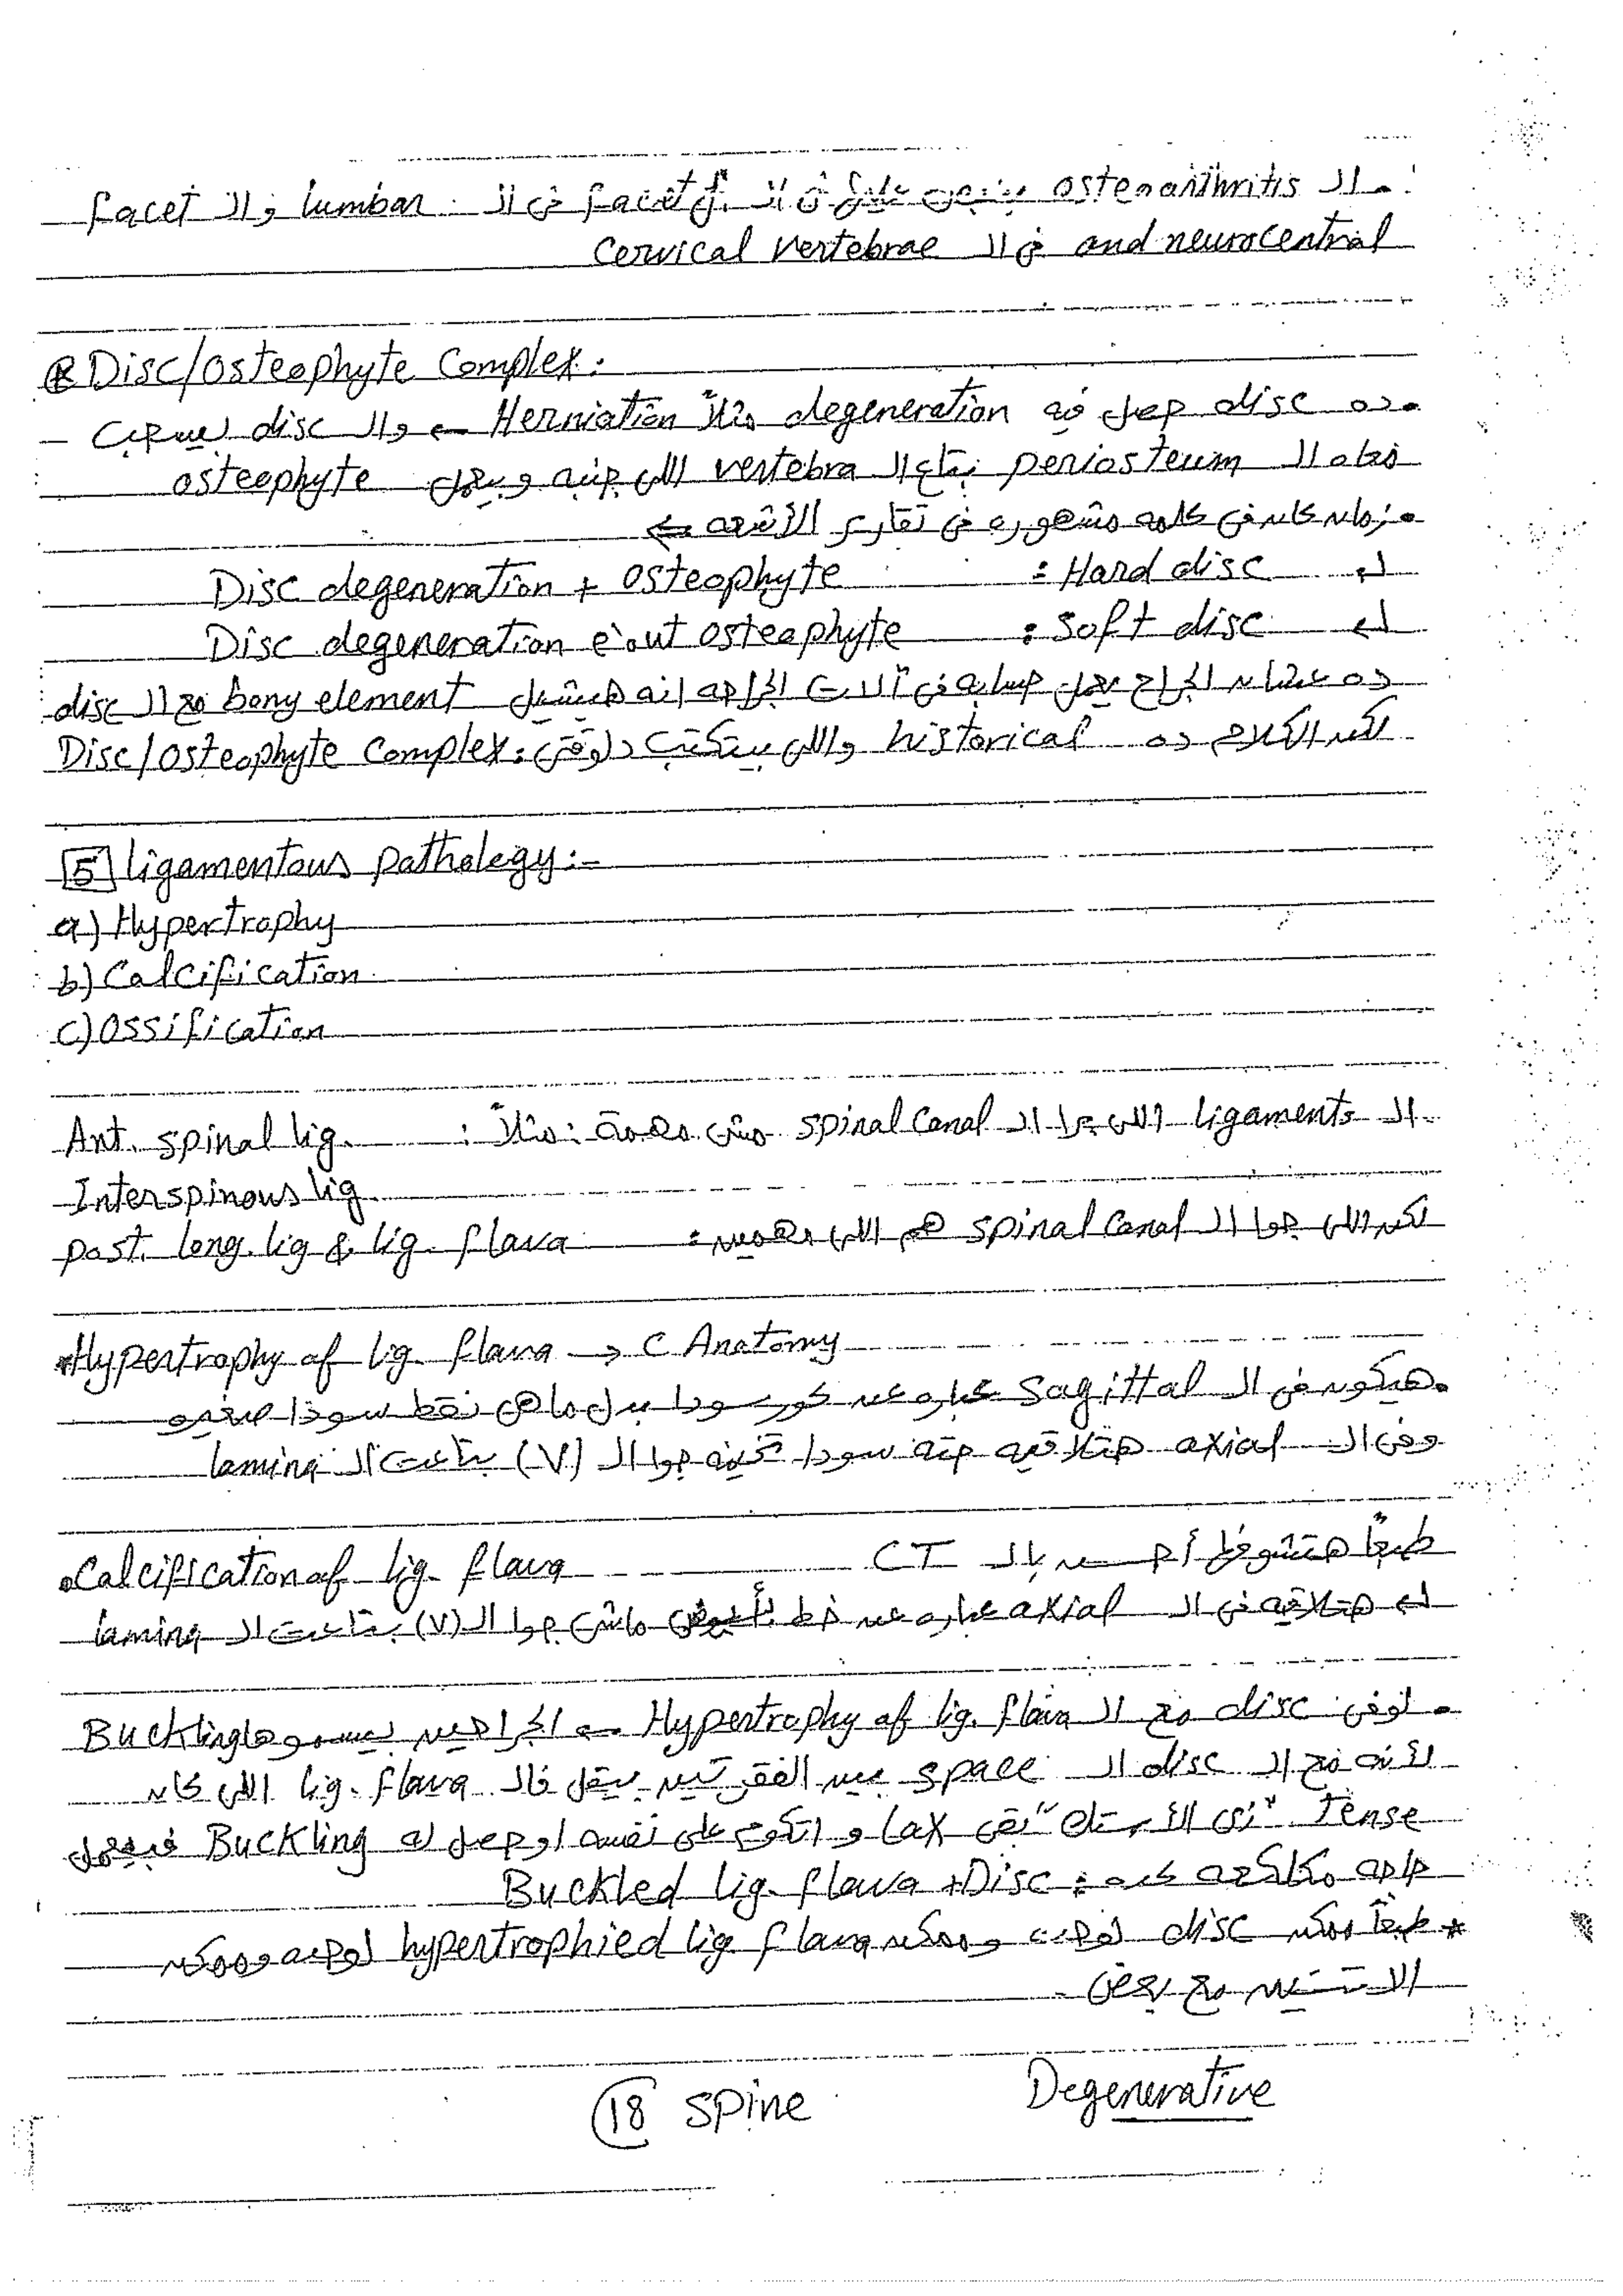 الـ osteoarthritis بنبص عليه في الـ facet في الـ lumbar والـ facet
and neurocentral في الـ cervical vertebrae
Disc/Osteophyte Complex:
ده disc حصل فيه degeneration مثلاً Herniation ← والـ disc بيسحب
معاه الـ periosteum بتاع الـ vertebra اللى جنبه وبيعمل osteophyte
زمان كان في كلمه مشهوره في تقارير الأشعه
Hard disc : Disc degeneration + Osteophyte
Soft disc : Disc degeneration e'out Osteophyte
ده عشان الجراح يعمل حسابه في آلات الجراحه انه هيشيل bony element مع الـ disc
لكن الكلام ده historical واللى بيتكتب دلوقتى: Disc/Osteophyte Complex
5 ligamentous pathology :-
a) Hypertrophy
b) Calcification
c) Ossification
الـ ligaments اللى برا الـ spinal canal مش مهمة : مثلاً : Ant. spinal lig.
Interspinous lig
لكن اللى جوا الـ spinal canal هم اللى مهمين : post. long. lig & lig. flava
*Hypertrophy of lig. flava → C Anatomy
هيكون في الـ sagittal عباره عن كور سودا بدل ماهى نقط سودا صغيره
وفى الـ axial هتلاقيه حته سودا تخينه جوا الـ (V) بتاعت الـ lamina
• Calcification of lig. flava طبعاً هتشوفها أحسن بالـ CT
هتلاقيه في الـ axial عباره عن خط أبيض ماشى جوا الـ (V) بتاعت الـ lamina
لوفى disc مع الـ Hypertrophy of lig. flava ← الجراحين بيسموها Buckling
لأنه مع الـ disc الـ space بين الفقرتين بيقل فالـ lig. flava اللى كان
tense "زى الأستك" بقى lax و اتكوم على نفسه او حصل له Buckling فبيعمل
حاجه مكلكعه كده : Buckled lig. flava + Disc
* طبعاً ممكن disc لوحده وممكن hypertrophied lig flava لوحده وممكن
الاتنين مع بعض
Degenerative
18 Spine